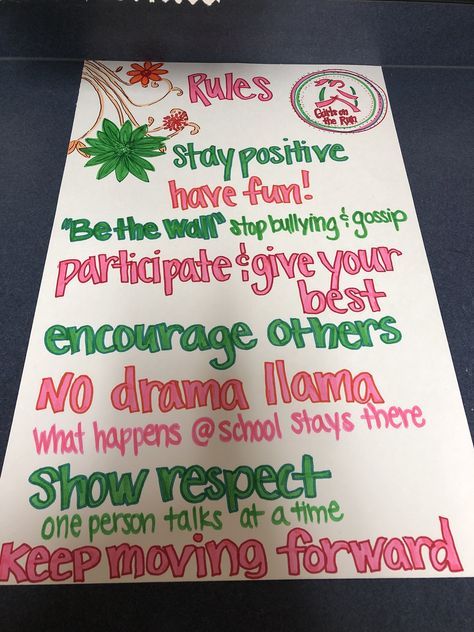 Rules
Girls on the Run
Stay positive
have fun!
"Be the wall" stop bullying & gossip
participate & give your
best
encourage others
NO drama llama
what happens @ school stays there
Show respect
one person talks at a time
Keep moving forward